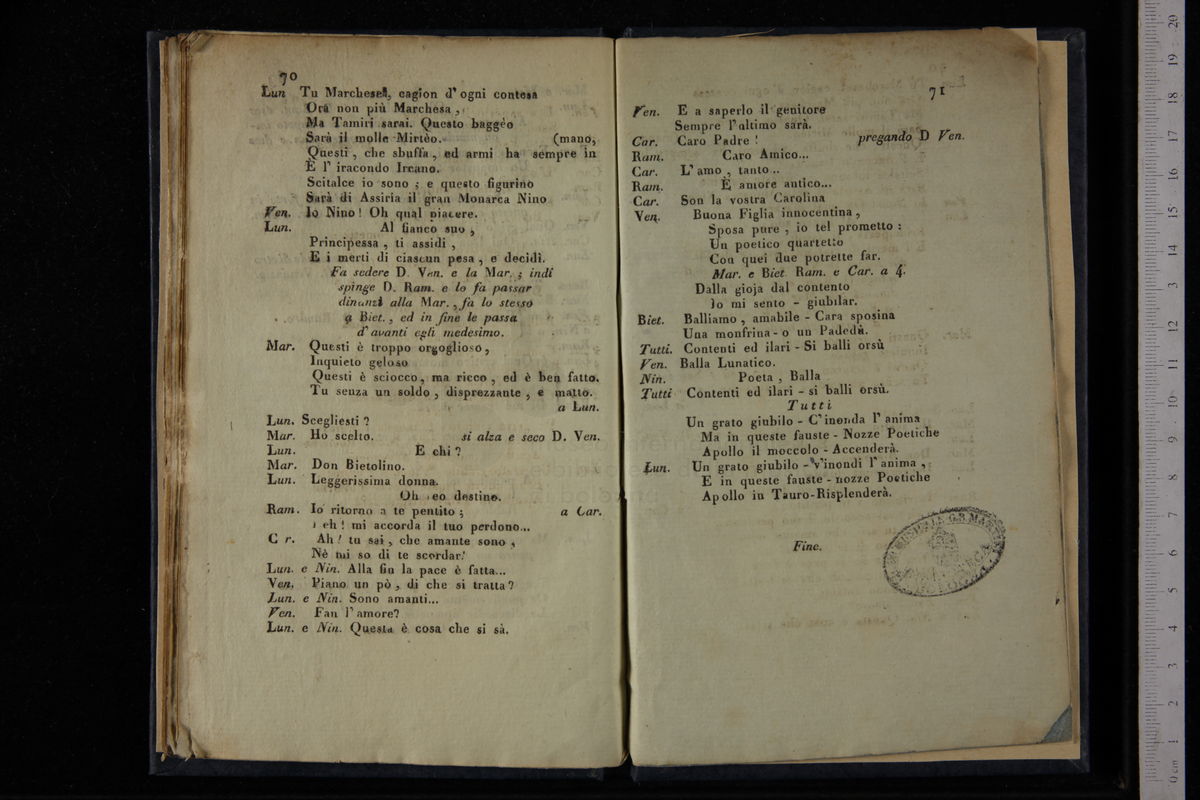 70
Lun Tu Marchesa, cagion d' ogni contesa
Ora non più Marchesa,
Ma Tamiri sarai. Questo baggèo
Sarà il molle Mirtèo. (mano,
Questi, che sbuffa, ed armi ha sempre in
E l' iracondo Ircano.
Scitalce io sono; e questo figurino
Sarà di Assiria il gran Monarca Nino
Ven. Io Nino! Oh qual piacere.
Lun. Al fianco suo,
Principessa, ti assidi,
E i merti di ciascun pesa, e decidi.
Fa sedere D. Ven. e la Mar.; indi
spinge D. Ram. e lo fa passar
dinanzi alla Mar., fa lo stesso
a Biet., ed in fine le passa
d' avanti egli medesimo.
Mar. Questi è troppo orgoglioso,
Inquieto geloso
Questi è sciocco, ma ricco, ed è ben fatto.
Tu senza un soldo, disprezzante, e matto.
a Lun.
Lun. Scegliesti?
Mar. Ho scelto. si alza e seco D. Ven.
Lun. E chi?
Mar. Don Bietolino.
Lun. Leggerissima donna.
Oh eo destino.
Ram. Io ritorno a te pentito; a Car.
eh! mi accorda il tuo perdono...
C r. Ah! tu sai, che amante sono,
Nè mi so di te scordar!
Lun. e Nin. Alla fin la pace è fatta...
Ven. Piano un pò, di che si tratta?
Lun. e Nin. Sono amanti...
Ven. Fan l' amore?
Lun. e Nin. Questa è cosa che si sà.
71
Ven. E a saperlo il genitore
Sempre l' ultimo sarà.
Car. Caro Padre! pregando D Ven.
Ram. Caro Amico...
Car. L' amo, tanto..
Ram. È amore antico...
Car. Son la vostra Carolina
Ven. Buona Figlia innocentina,
Sposa pure, io tel prometto:
Un poetico quartetto
Con quei due potrette far.
Mar. e Biet. Ram. e Car. a 4.
Dalla gioja dal contento
Io mi sento - giubilar.
Biet. Balliamo, amabile - Cara sposina
Una monfrina - o un Padedù.
Tutti. Contenti ed ilari - Si balli orsù
Ven. Balla Lunatico.
Nin. Poeta, Balla
Tutti Contenti ed ilari - si balli orsù.
Tutti
Un grato giubilo - C' inonda l' anima
Ma in queste fauste - Nozze Poetiche
Apollo il moccolo - Accenderà.
Lun. Un grato giubilo - V'inondi l' anima,
E in queste fauste - nozze Poetiche
Apollo in Tauro-Risplenderà.
Fine.
0 cm 1 2 3 4 5 6 7 8 9 10 11 12 13 14 15 16 17 18 19 20